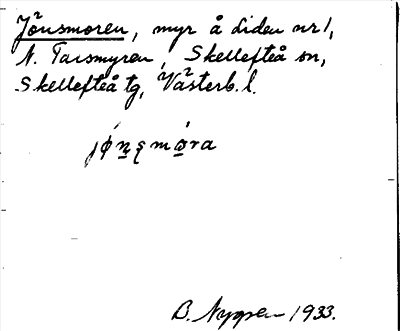 Jönsmoren, myr å liden nr 1,
N. Tarsmyren, Skellefteå sn,
Skellefteå tg, Västerb. l.
jǿn̲s̨mǿ̲ra
B. Nygren 1933.